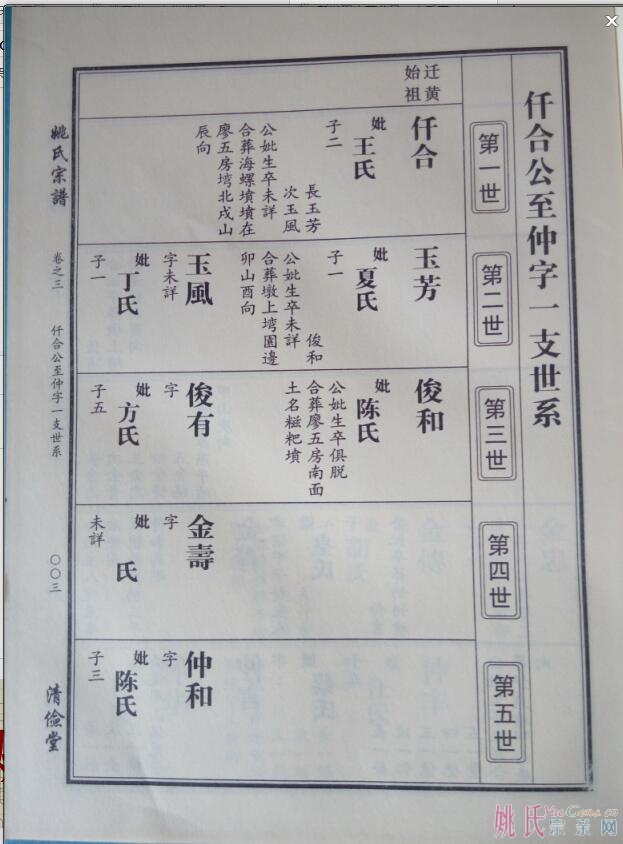 仟合公至仲字一支世系
第一世
迁黄
始祖
仟合
妣王氏
子二
長玉芳
次玉風
公妣生卒未詳
合葬海螺墳墳在
廖五房塆北戌山
辰向
第二世
玉芳
妣夏氏
子一
俊和
公妣生卒未詳
合葬墩上塆園邊
卯山酉向
玉風
字未詳
妣丁氏
子一
第三世
俊和
妣陈氏
公妣生卒俱脱
合葬廖五房南面
土名糍粑墳
俊有
字
妣方氏
子五
第四世
金壽
字
妣 氏
未詳
第五世
仲和
字
妣陈氏
子三
姚氏宗譜
卷之三 仟合公至仲字一支世系
〇〇三
清儉堂
姚氏宗亲网
YaoGens.cn